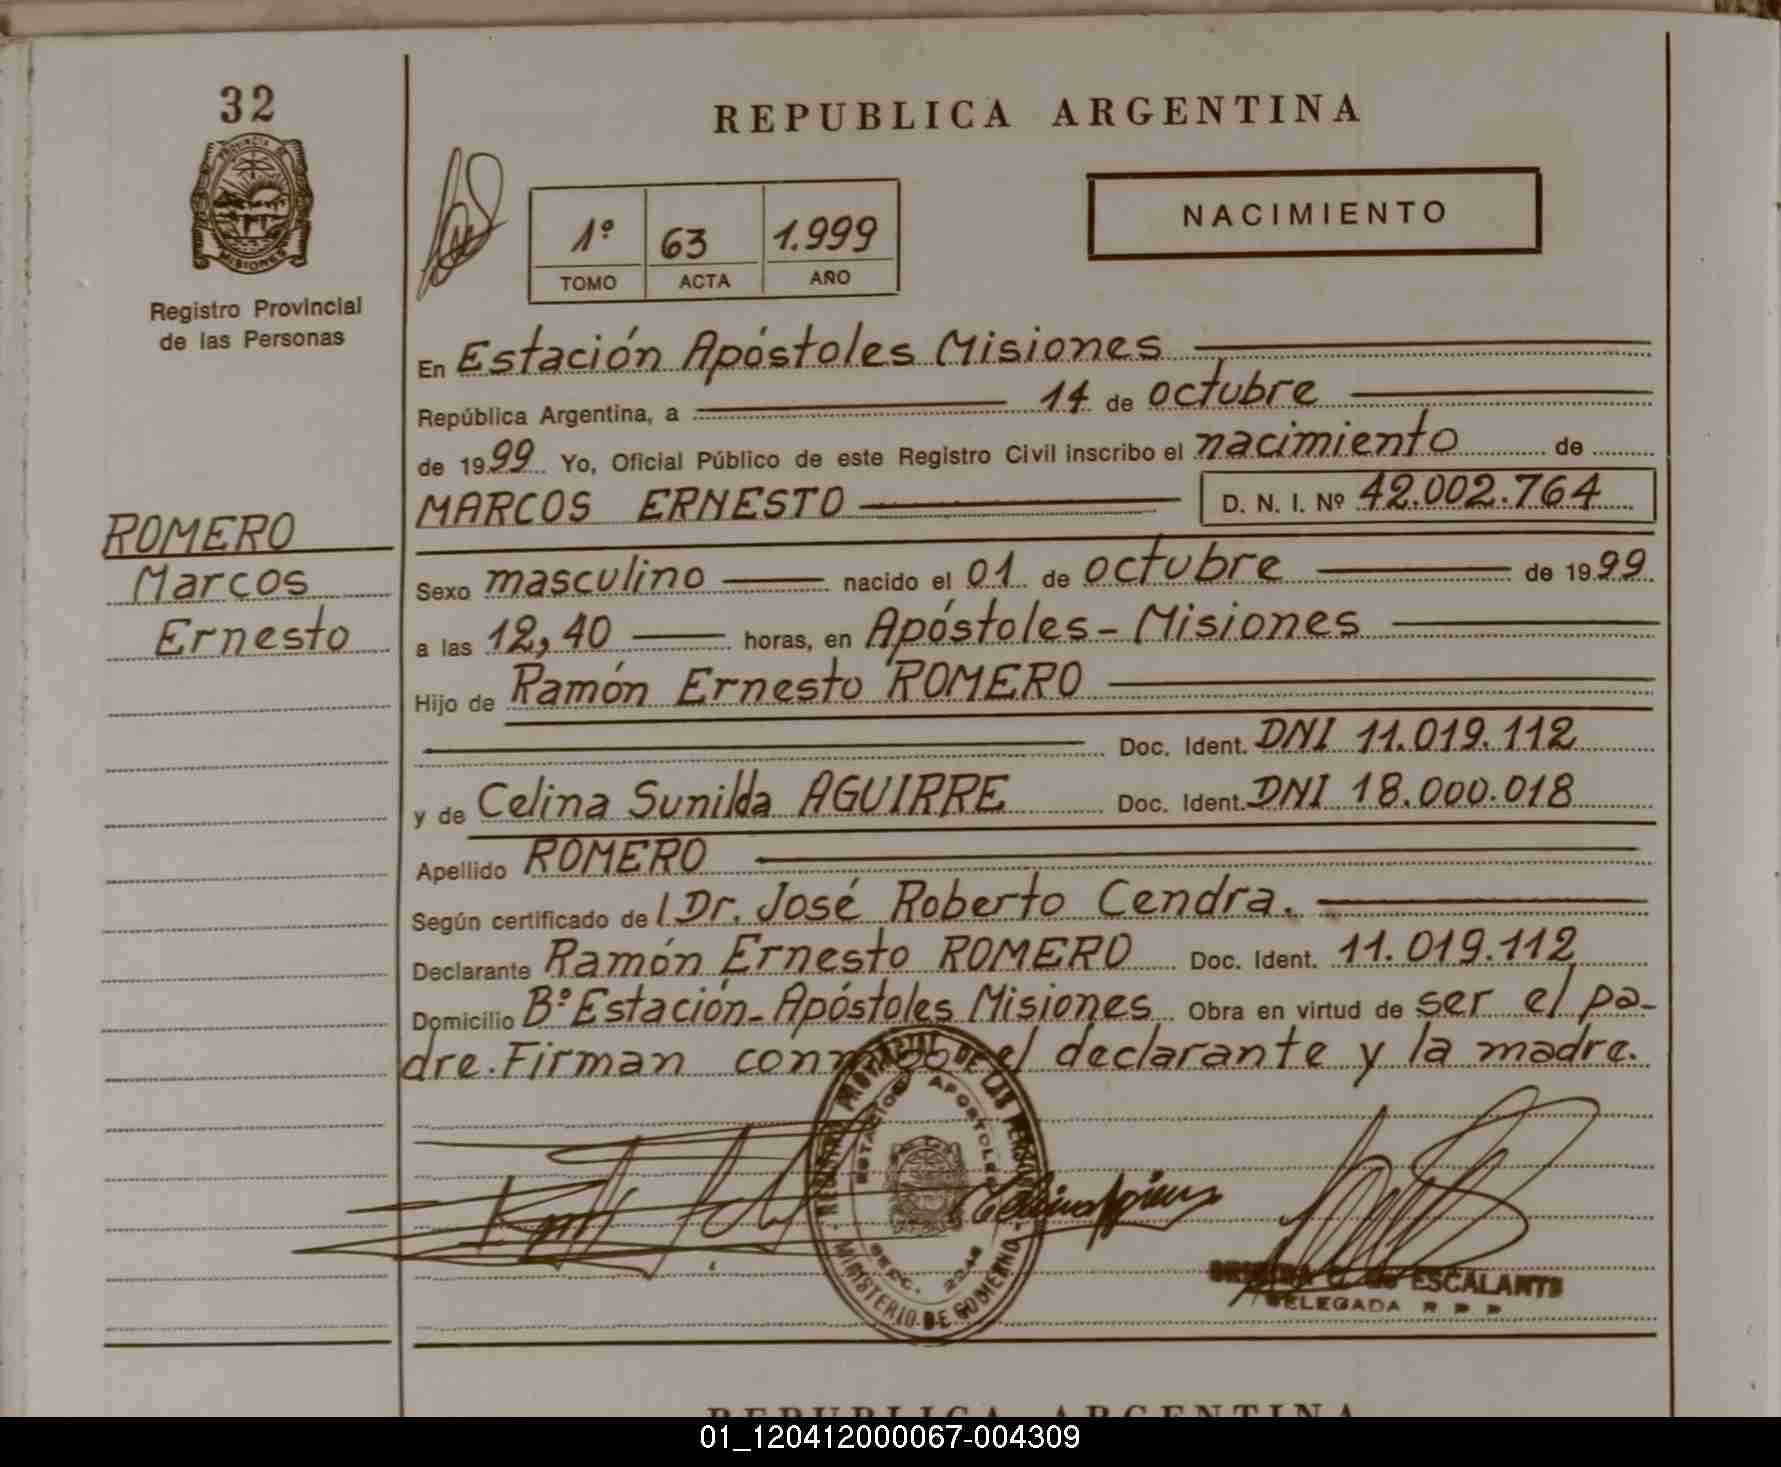 32
REPUBLICA ARGENTINA
PROVINCIA DE
MISIONES
Registro Provincial
de las Personas
1º 63 1.999
TOMO ACTA AÑO
NACIMIENTO
En Estación Apóstoles Misiones
República Argentina, a 14 de octubre
de 1999 Yo, Oficial Público de este Registro Civil inscribo el nacimiento de
MARCOS ERNESTO D. N. I. Nº 42.002.764
ROMERO
Marcos
Ernesto
Sexo masculino nacido el 01 de octubre de 1999
a las 12,40 horas, en Apóstoles - Misiones
Hijo de Ramón Ernesto ROMERO
Doc. Ident. DNI 11.019.112
y de Celina Sunilda AGUIRRE Doc. Ident. DNI 18.000.018
Apellido ROMERO
Según certificado del Dr. José Roberto Cendra.
Declarante Ramón Ernesto ROMERO Doc. Ident. 11.019.112
Domicilio Bº Estación - Apóstoles Misiones Obra en virtud de ser el pa-
dre. Firman conmigo el declarante y la madre.
REGISTRO PROVINCIAL DE LAS PERSONAS
ESTACION APOSTOLES
MINISTERIO DE GOBIERNO
ESCALANTE
DELEGADA R P P
REPUBLICA ARGENTINA
01_120412000067-004309